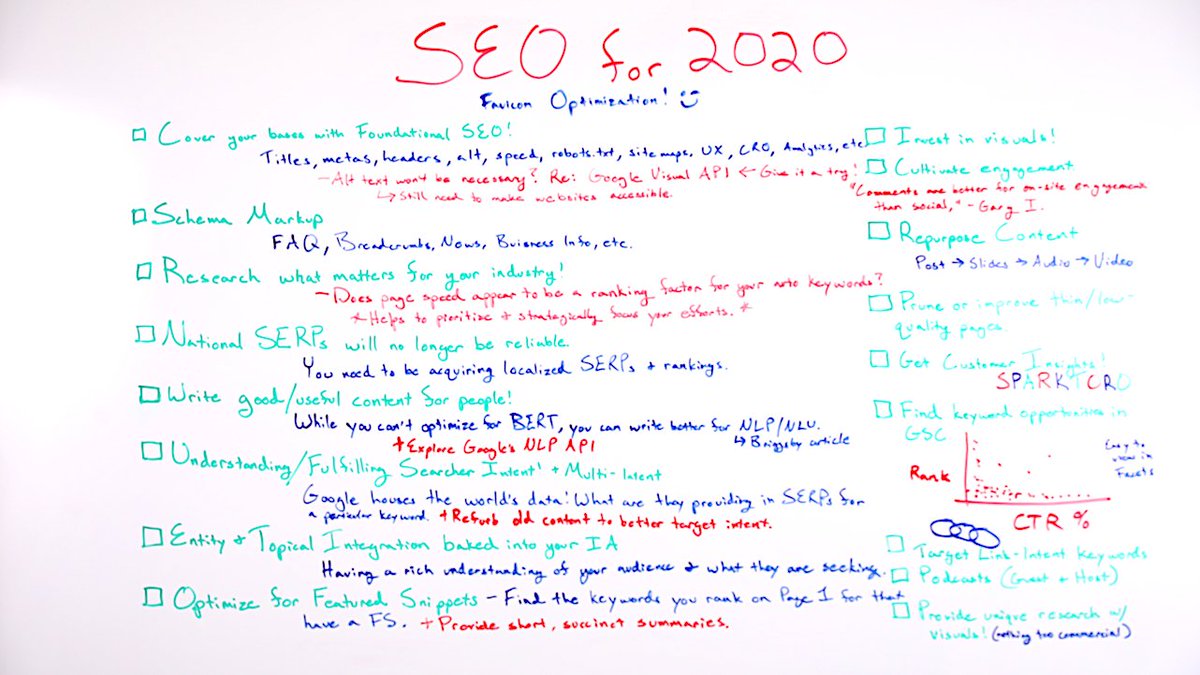 SEO for 2020
Favicon Optimization!
Cover your bases with Foundational SEO!
Titles, metas, headers, alt, speed, robots.txt, site maps, UX, CRO, Analytics, etc.
- Alt text won't be necessary? Re: Google Visual API ← Give it a try!
↳ Still need to make websites accessible.
Schema Markup
FAQ, Breadcrumbs, News, Buisness Info, etc.
Research what matters for your industry!
- Does page speed appear to be a ranking factor for your auto keywords?
* Helps to prioritize + strategically focus your efforts. *
National SERPs will no longer be reliable.
You need to be acquiring localized SERPs + rankings.
Write good/useful content for people!
While you can't optimize for BERT, you can write better for NLP/NLU.
↳ Briggsby article
+ Explore Google's NLP API
Understanding/Fulfilling Searcher Intent + Multi-Intent
Google houses the world's data! What are they providing in SERPs for
a particular keyword. + Refurb old content to better target intent.
Entity + Topical Integration baked into your IA
Having a rich understanding of your audience + what they are seeking.
Optimize for Featured Snippets - Find the keywords you rank on Page 1 for that
have a FS. + Provide short, succinct summaries.
Invest in visuals!
Cultivate engagement
"Comments are better for on-site engagement
than social," - Garg I.
Repurpose Content
Post → Slides → Audio → Video
Prune or improve thin/low-
quality pages.
Get Customer Insights!
SPARKTORO
Find keyword opportunities in
GSC
Easy to
view in
Facets
Rank
CTR %
Target Link-Intent Keywords
Podcasts (Guest + Host)
Provide unique research w/
visuals! (nothing too commercial)